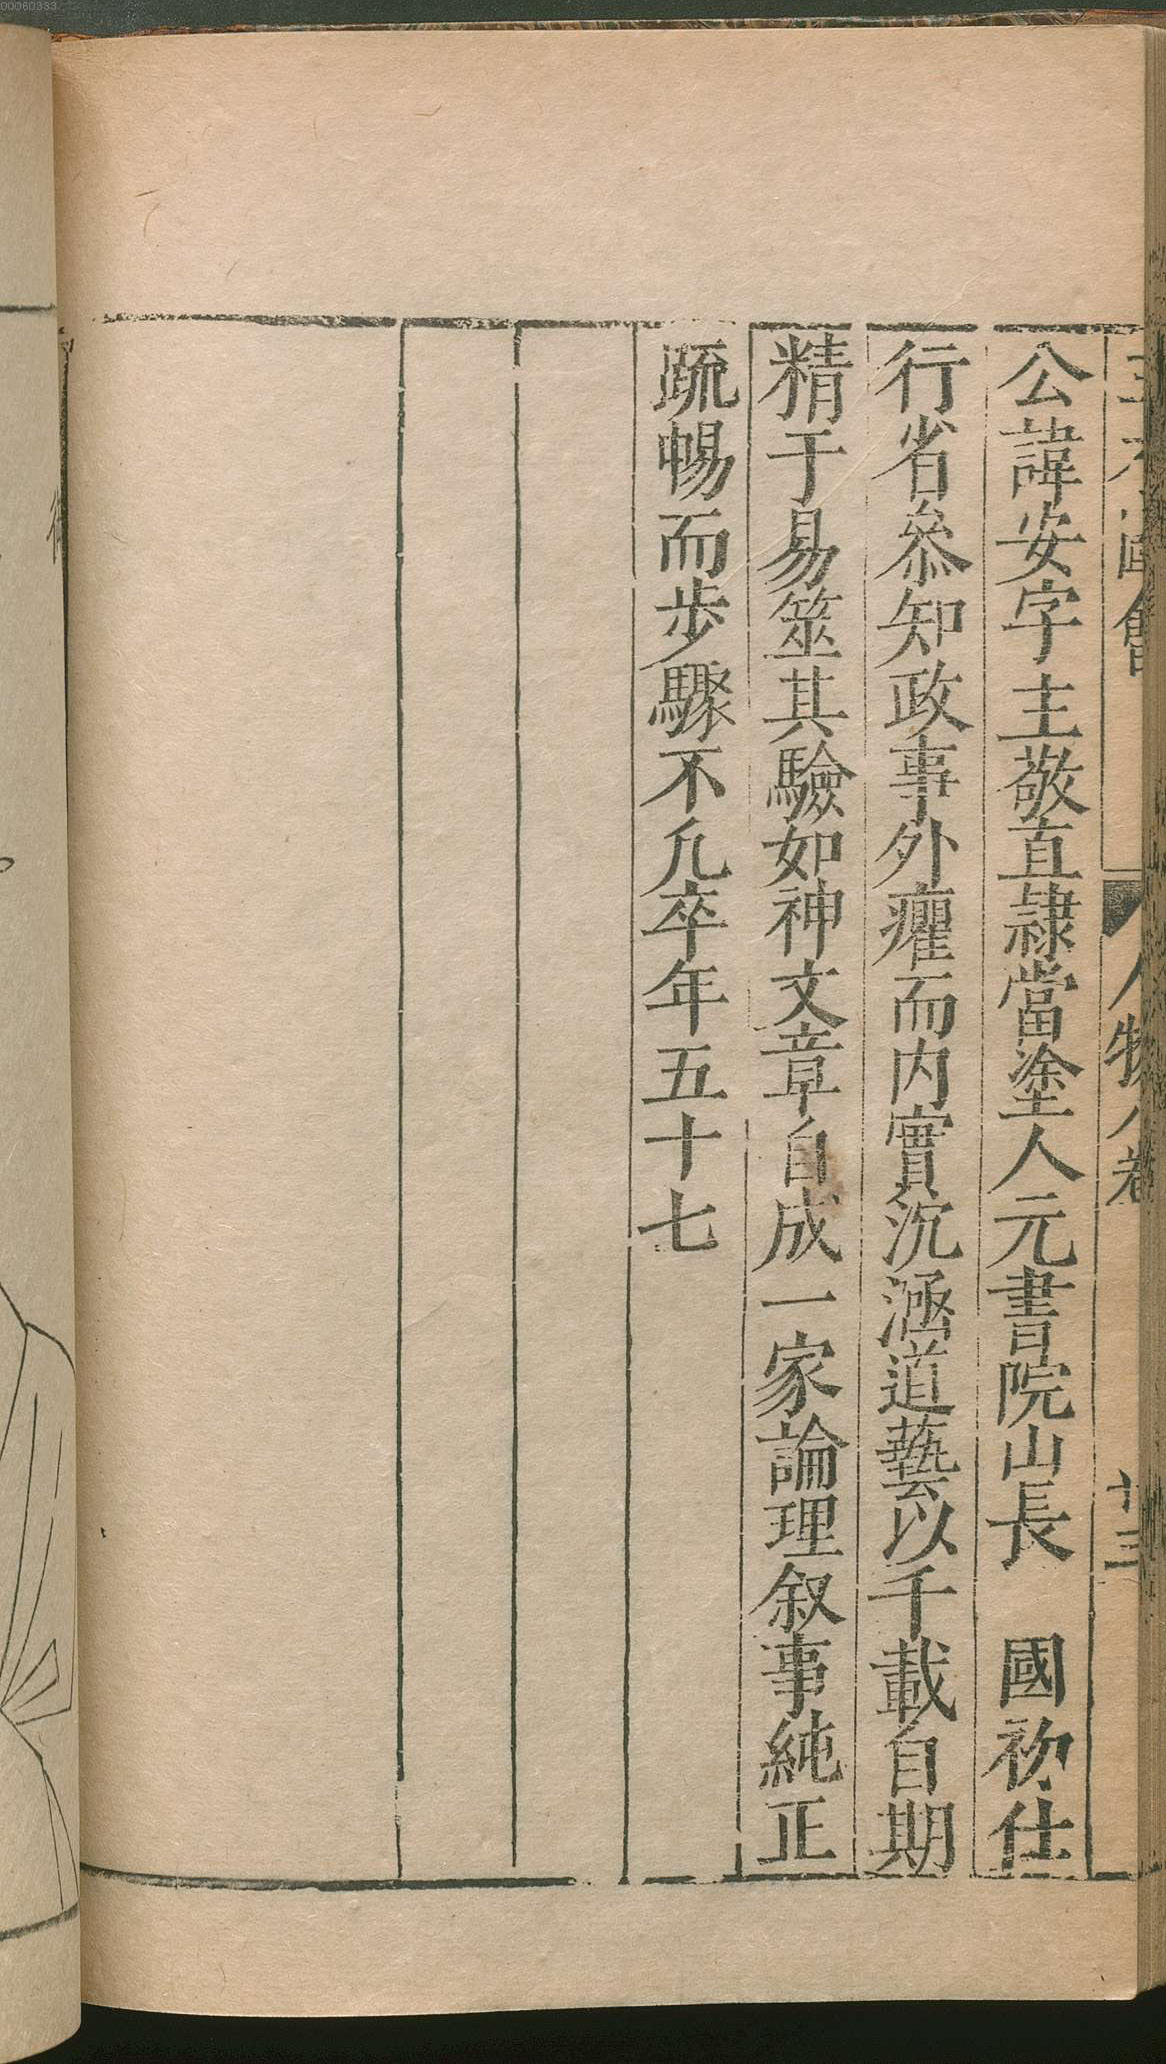 三才圖會 人物八卷 廿三
公諱安字主敬直隷當塗人元書院山長 國初仕
行省叅知政事外癯而内實沉涵道藝以千載自期
精于易筮其驗如神文章自成一家論理叙事純正
疏暢而步驟不凡卒年五十七
00060333